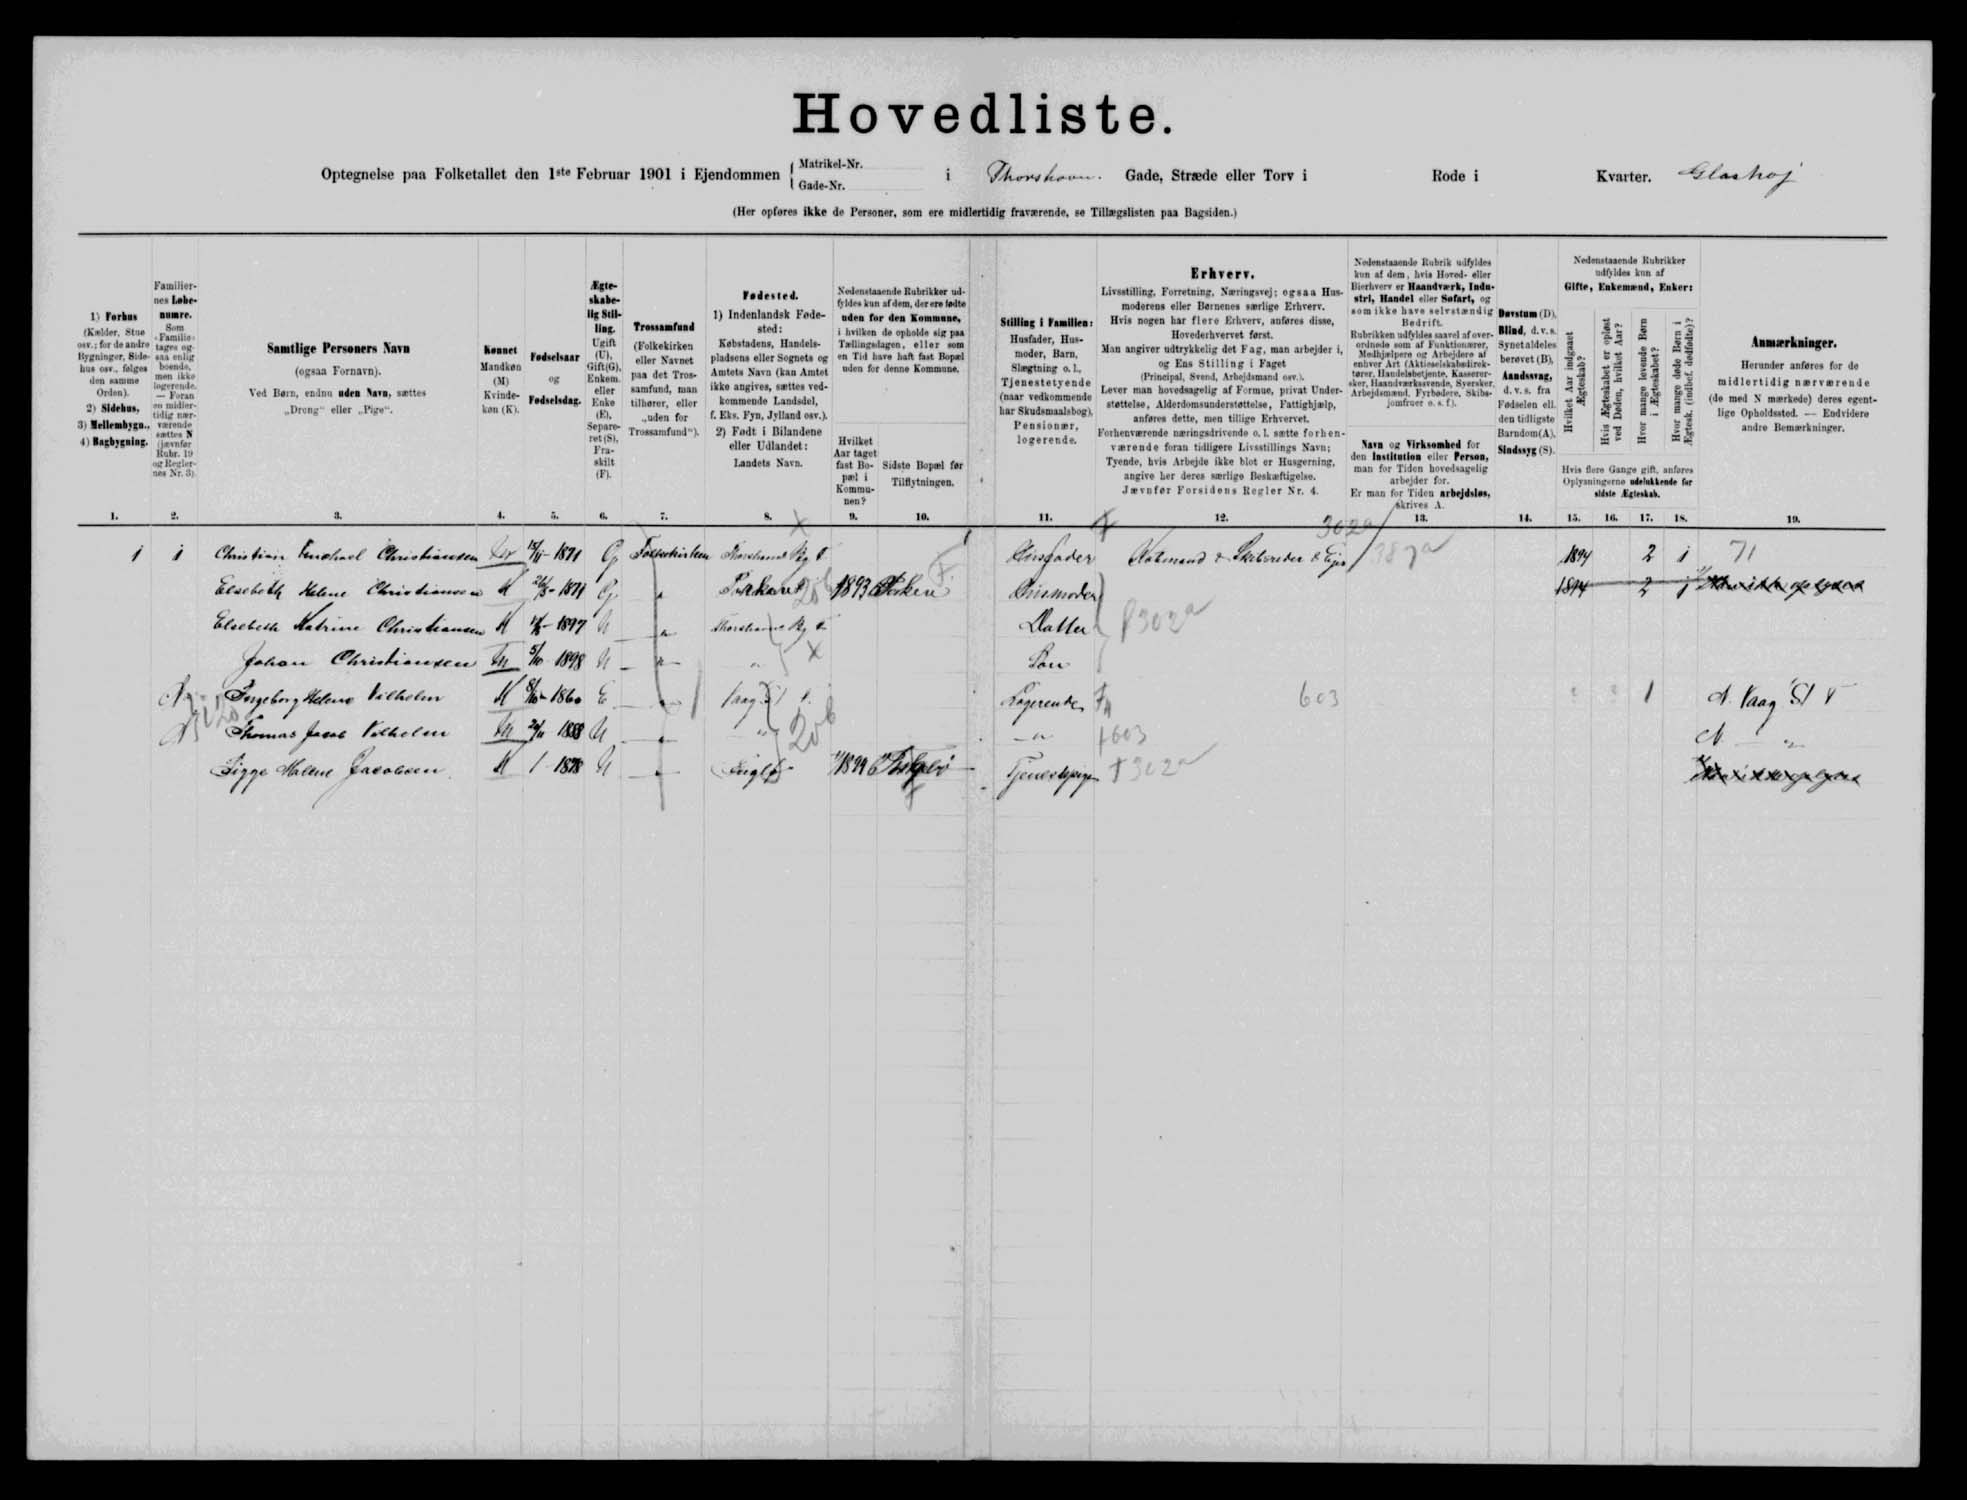 Hovedliste.
Optegnelse paa Folketallet den 1ste Februar 1901 i Ejendommen { Matrikel-Nr. Gade-Nr. i Thorshavn. Gade, Stræde eller Torv i Rode i Kvarter. Glashøj
(Her opføres ikke de Personer, som ere midlertidig fraværende, se Tillægslisten paa Bagsiden.)
1) Forhus
(Kælder, Stue
osv.; for de andre
Bygninger, Side-
hus osv., følges
den samme
Orden).
2) Sidehus,
3) Mellembygn.,
4) Bagbygning.
Familier-
nes Løbe-
numre.
Som
Familie
tages og-
saa enlig
boende,
men ikke
logerende.
— Foran
en midler-
tidig nær-
værende
sættes N
(jævnfør
Rubr. 19
og Regler-
nes Nr. 3).
Samtlige Personers Navn
(ogsaa Fornavn).
Ved Børn, endnu uden Navn, sættes
„Dreng“ eller „Pige“.
Kønnet
Mandkøn
(M)
Kvinde-
køn (K).
Fødselsaar
og
Fødselsdag.
Ægte-
skabe-
lig Stil-
ling.
Ugift
(U),
Gift(G),
Enkem.
eller
Enke
(E),
Separe-
ret (S),
Fra-
skilt
(F).
Trossamfund
(Folkekirken
eller Navnet
paa det Tros-
samfund, man
tilhører, eller
„uden for
Trossamfund“).
Fødested.
1) Indenlandsk Føde-
sted:
Købstadens, Handels-
pladsens eller Sognets og
Amtets Navn (kan Amtet
ikke angives, sættes ved-
kommende Landsdel,
f. Eks. Fyn, Jylland osv.).
2) Født i Bilandene
eller Udlandet:
Landets Navn.
Nedenstaaende Rubrikker ud-
fyldes kun af dem, der ere fødte
uden for den Kommune,
i hvilken de opholde sig paa
Tællingsdagen, eller som
en Tid have haft fast Bopæl
uden for denne Kommune.
Hvilket
Aar taget
fast Bo-
pæl i
Kommu-
nen?
Sidste Bopæl før
Tilflytningen.
Stilling i Familien:
Husfader, Hus-
moder, Barn,
Slægtning o. l.,
Tjenestetyende
(naar vedkommende
har Skudsmaalsbog),
Pensionær,
logerende.
Erhverv.
Livsstilling, Forretning, Næringsvej; ogsaa Hus-
moderens eller Børnenes særlige Erhverv.
Hvis nogen har flere Erhverv, anføres disse,
Hovederhvervet først.
Man angiver udtrykkelig det Fag, man arbejder i,
og Ens Stilling i Faget
(Principal, Svend, Arbejdsmand osv.).
Lever man hovedsagelig af Formue, privat Under-
støttelse, Alderdomsunderstøttelse, Fattighjælp,
anføres dette, men tillige Erhvervet.
Forhenværende næringsdrivende o. l. sætte forhen-
værende foran tidligere Livsstillings Navn;
Tyende, hvis Arbejde ikke blot er Husgerning,
angive her deres særlige Beskæftigelse.
Jævnfør Forsidens Regler Nr. 4.
Nedenstaaende Rubrik udfyldes
kun af dem, hvis Hoved- eller
Bierhverv er Haandværk, Indu-
stri, Handel eller Søfart, og
som ikke have selvstændig
Bedrift.
Rubrikken udfyldes saavel af over-
ordnede som af Funktionærer,
Medhjælpere og Arbejdere af
enhver Art (Aktieselskabsdirek-
tører, Handelsbetjente, Kasserer-
sker, Haandværkssvende, Syersker,
Arbejdsmænd, Fyrbødere, Skibs-
jomfruer o. s. f.).
Navn og Virksomhed for
den Institution eller Person,
man for Tiden hovedsagelig
arbejder for.
Er man for Tiden arbejdsløs,
skrives A.
Døvstum (D),
Blind, d. v. s.
Synet aldeles
berøvet (B),
Aandssvag,
d. v. s. fra
Fødselen ell.
den tidligste
Barndom(A),
Sindssyg (S).
Nedenstaaende Rubrikker
udfyldes kun af
Gifte, Enkemænd, Enker:
Hvilket Aar indgaaet
Ægteskab?
Hvis Ægteskabet er opløst
ved Døden, hvilket Aar?
Hvor mange levende Børn
i Ægteskabet?
Hvor mange døde Børn i
Ægtesk. (indbef. dødfødte)?
Hvis flere Gange gift, anføres
Oplysningerne udelukkende for
sidste Ægteskab.
Anmærkninger.
Herunder anføres for de
midlertidig nærværende
(de med N mærkede) deres egent-
lige Opholdssted. — Endvidere
andre Bemærkninger.
1. 2. 3. 4. 5. 6. 7. 8. 9. 10. 11. 12. 13. 14. 15. 16. 17. 18. 19.
1 1 Christian Christiansen 1871 G Folkekirken Thorshavn Husfader 302a 387a 1894 2 1 71
Elsebeth Helene Christiansen K 1871 G " 1893 Husmoder 1894 2 1
Elsebeth Katrine Christiansen K 1897 U " Thorshavn Datter 302a
Johan Christiansen M 5/10 1898 U " " Søn
N Ingeborg Helene Vilhelm K 1860 E " Vaag Logerende 603 1 N. Vaag
N Thomas Jacob Vilhelm M 1888 U " " 20b " 603 N "
Sigge Malene Jacobsen K 1 1878 U " Fuglø 1899 Tjenestepige 302a